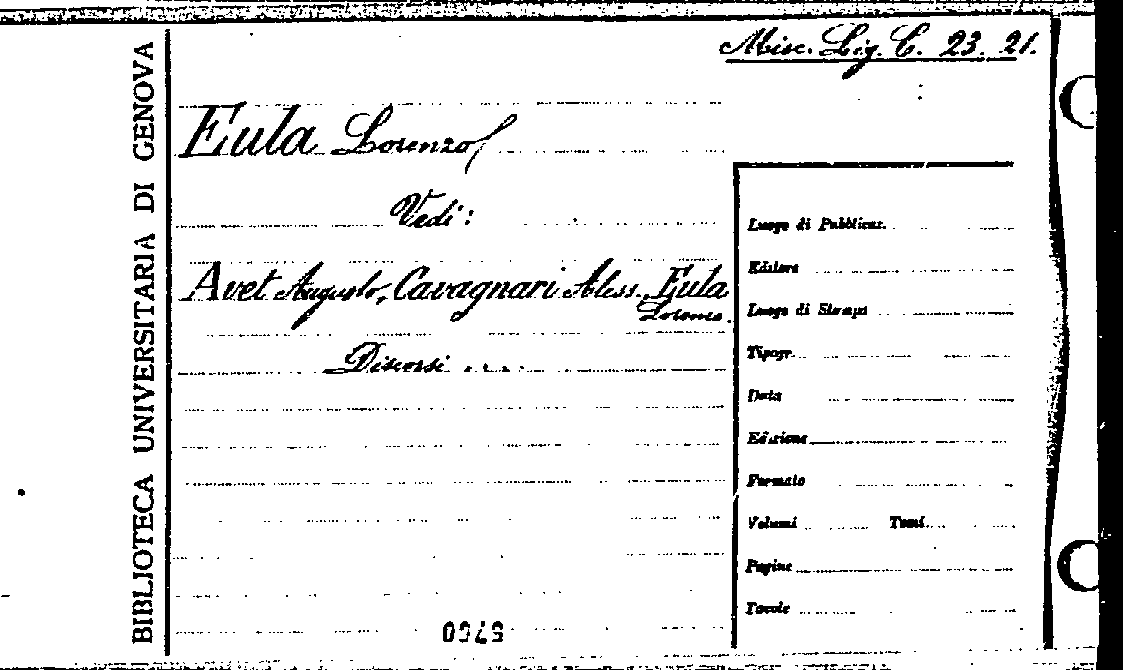 Misc. Lig. C. 23. 21.
Eula Lorenzo
Vedi:
Avet Augusto, Cavagnari Aless., Eula
Lorenzo.
Discorsi ....
BIBLIOTECA UNIVERSITARIA DI GENOVA
Luogo di Pubblicaz.
Editore
Luogo di Stampa
Tipogr.
Data
Edizione
Formato
Volumi Tomi
Pagine
Tavole